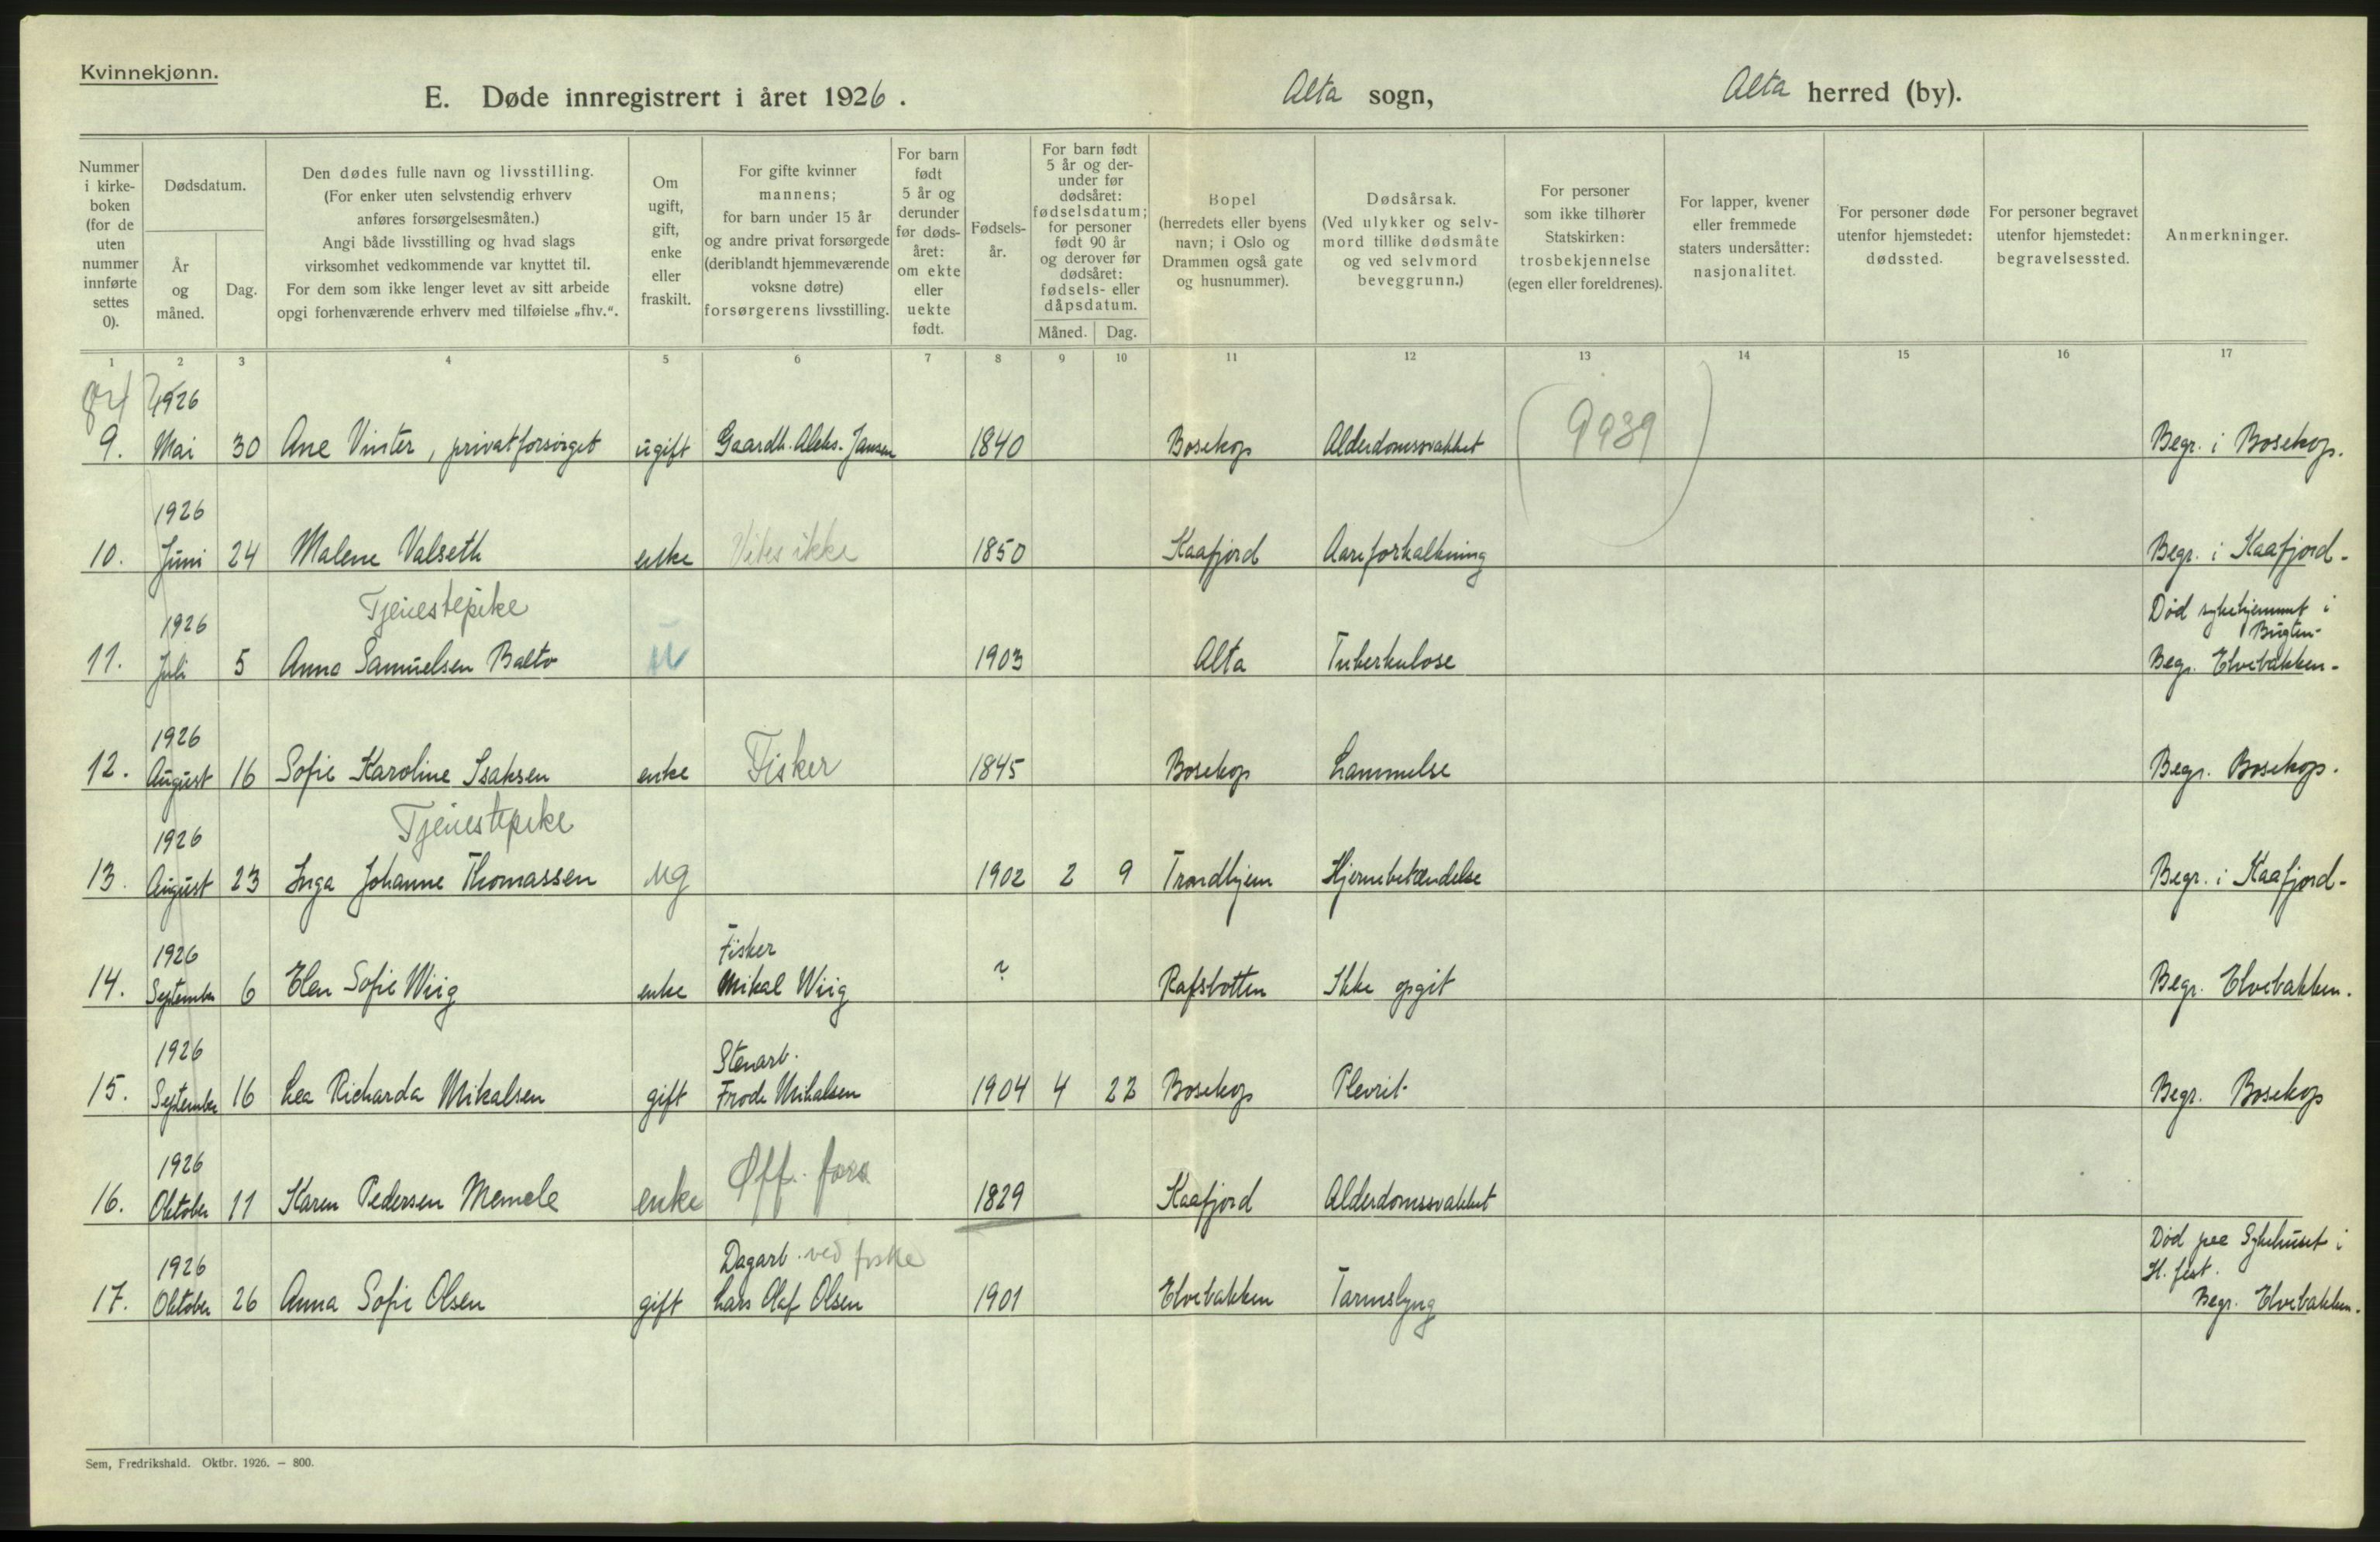 Kvinnekjønn.
E. Døde innregistrert i året 1926. Alta sogn, Alta herred (by).
Nummer i kirke- boken (for de uten nummer innførte settes 0).
Dødsdatum.
År og måned.
Dag.
Den dødes fulle navn og livsstilling.
(For enker uten selvstendig erhverv
anføres forsørgelsesmåten.)
Angi både livsstilling og hvad slags
virksomhet vedkommende var knyttet til.
For dem som ikke lenger levet av sitt arbeide
opgi forhenværende erhverv med tilføielse „fhv.“.
Om ugift, gift, enke eller fraskilt.
For gifte kvinner
mannens;
for barn under 15 år
og andre privat forsørgede
(deriblandt hjemmeværende
voksne døtre)
forsørgerens livsstilling.
For barn født 5 år og derunder før døds- året: om ekte eller uekte født.
Fødsels- år.
For barn født 5 år og der- under før dødsåret: fødselsdatum; for personer født 90 år og derover før dødsåret: fødsels- eller dåpsdatum.
Måned. Dag.
Bopel
(herredets eller byens
navn; i Oslo og
Drammen også gate
og husnummer).
Dødsårsak.
(Ved ulykker og selv-
mord tillike dødsmåte
og ved selvmord
beveggrunn.)
For personer
som ikke tilhører
Statskirken:
trosbekjennelse
(egen eller foreldrenes).
For lapper, kvener
eller fremmede
staters undersåtter:
nasjonalitet.
For personer døde
utenfor hjemstedet:
dødssted.
For personer begravet
utenfor hjemstedet:
begravelsessted.
Anmerkninger.
1 2 3 4 5 6 7 8 9 10 11 12 13 14 15 16 17
1926
9. Mai 30 Ane Vinter, privatforsörget ugift Gaardb. Aleks. Jansen 1840 Bosekop Alderdomssvakhet (9939) Begr. i Bosekop.
1926
10. Juni 24 Malene Valseth enke Vites ikke 1850 Kaafjord Aareforkalkning Begr. i Kaafjord.
Tjenestepike
Död sykehjemmet i
1926 Bugten.
11. Juli 5 Anna Samuelsen Balto u 1903 Alta Tuberkulose Begr. Elvebakken.
1926
12. August 16 Sofie Karoline Isaksen enke Fisker 1845 Bosekop Lammelse Begr. Bosekop.
Tjenestepike
1926
13. August 23 Inga Johanne Thomassen ug 1902 2 9 Trondhjem Hjernebetændelse Begr. i Kaafjord.
1926 Fisker
14. September 6 Elen Sofie Wiig enke Mikal Wiig ? Rafsbotten Ikke opgit Begr. Elvebakken.
1926 Stenarb.
15. September 16 Lea Richarda Mikalsen gift Frode Mikalsen 1904 4 22 Bosekop Plevrit Begr. Bosekop
1926
16. Oktober 11 Karen Pedersen Memele enke Off. fors 1829 Kaafjord Alderdomssvakhet
Död paa Sykehuset i
1926 Dagarb. ved fiske H. fest.
17. Oktober 26 Anna Sofie Olsen gift Lars Olaf Olsen 1901 Elvebakken Tarmslyng Begr. Elvebakken.
Sem, Fredrikshald. Oktbr. 1926. – 800.